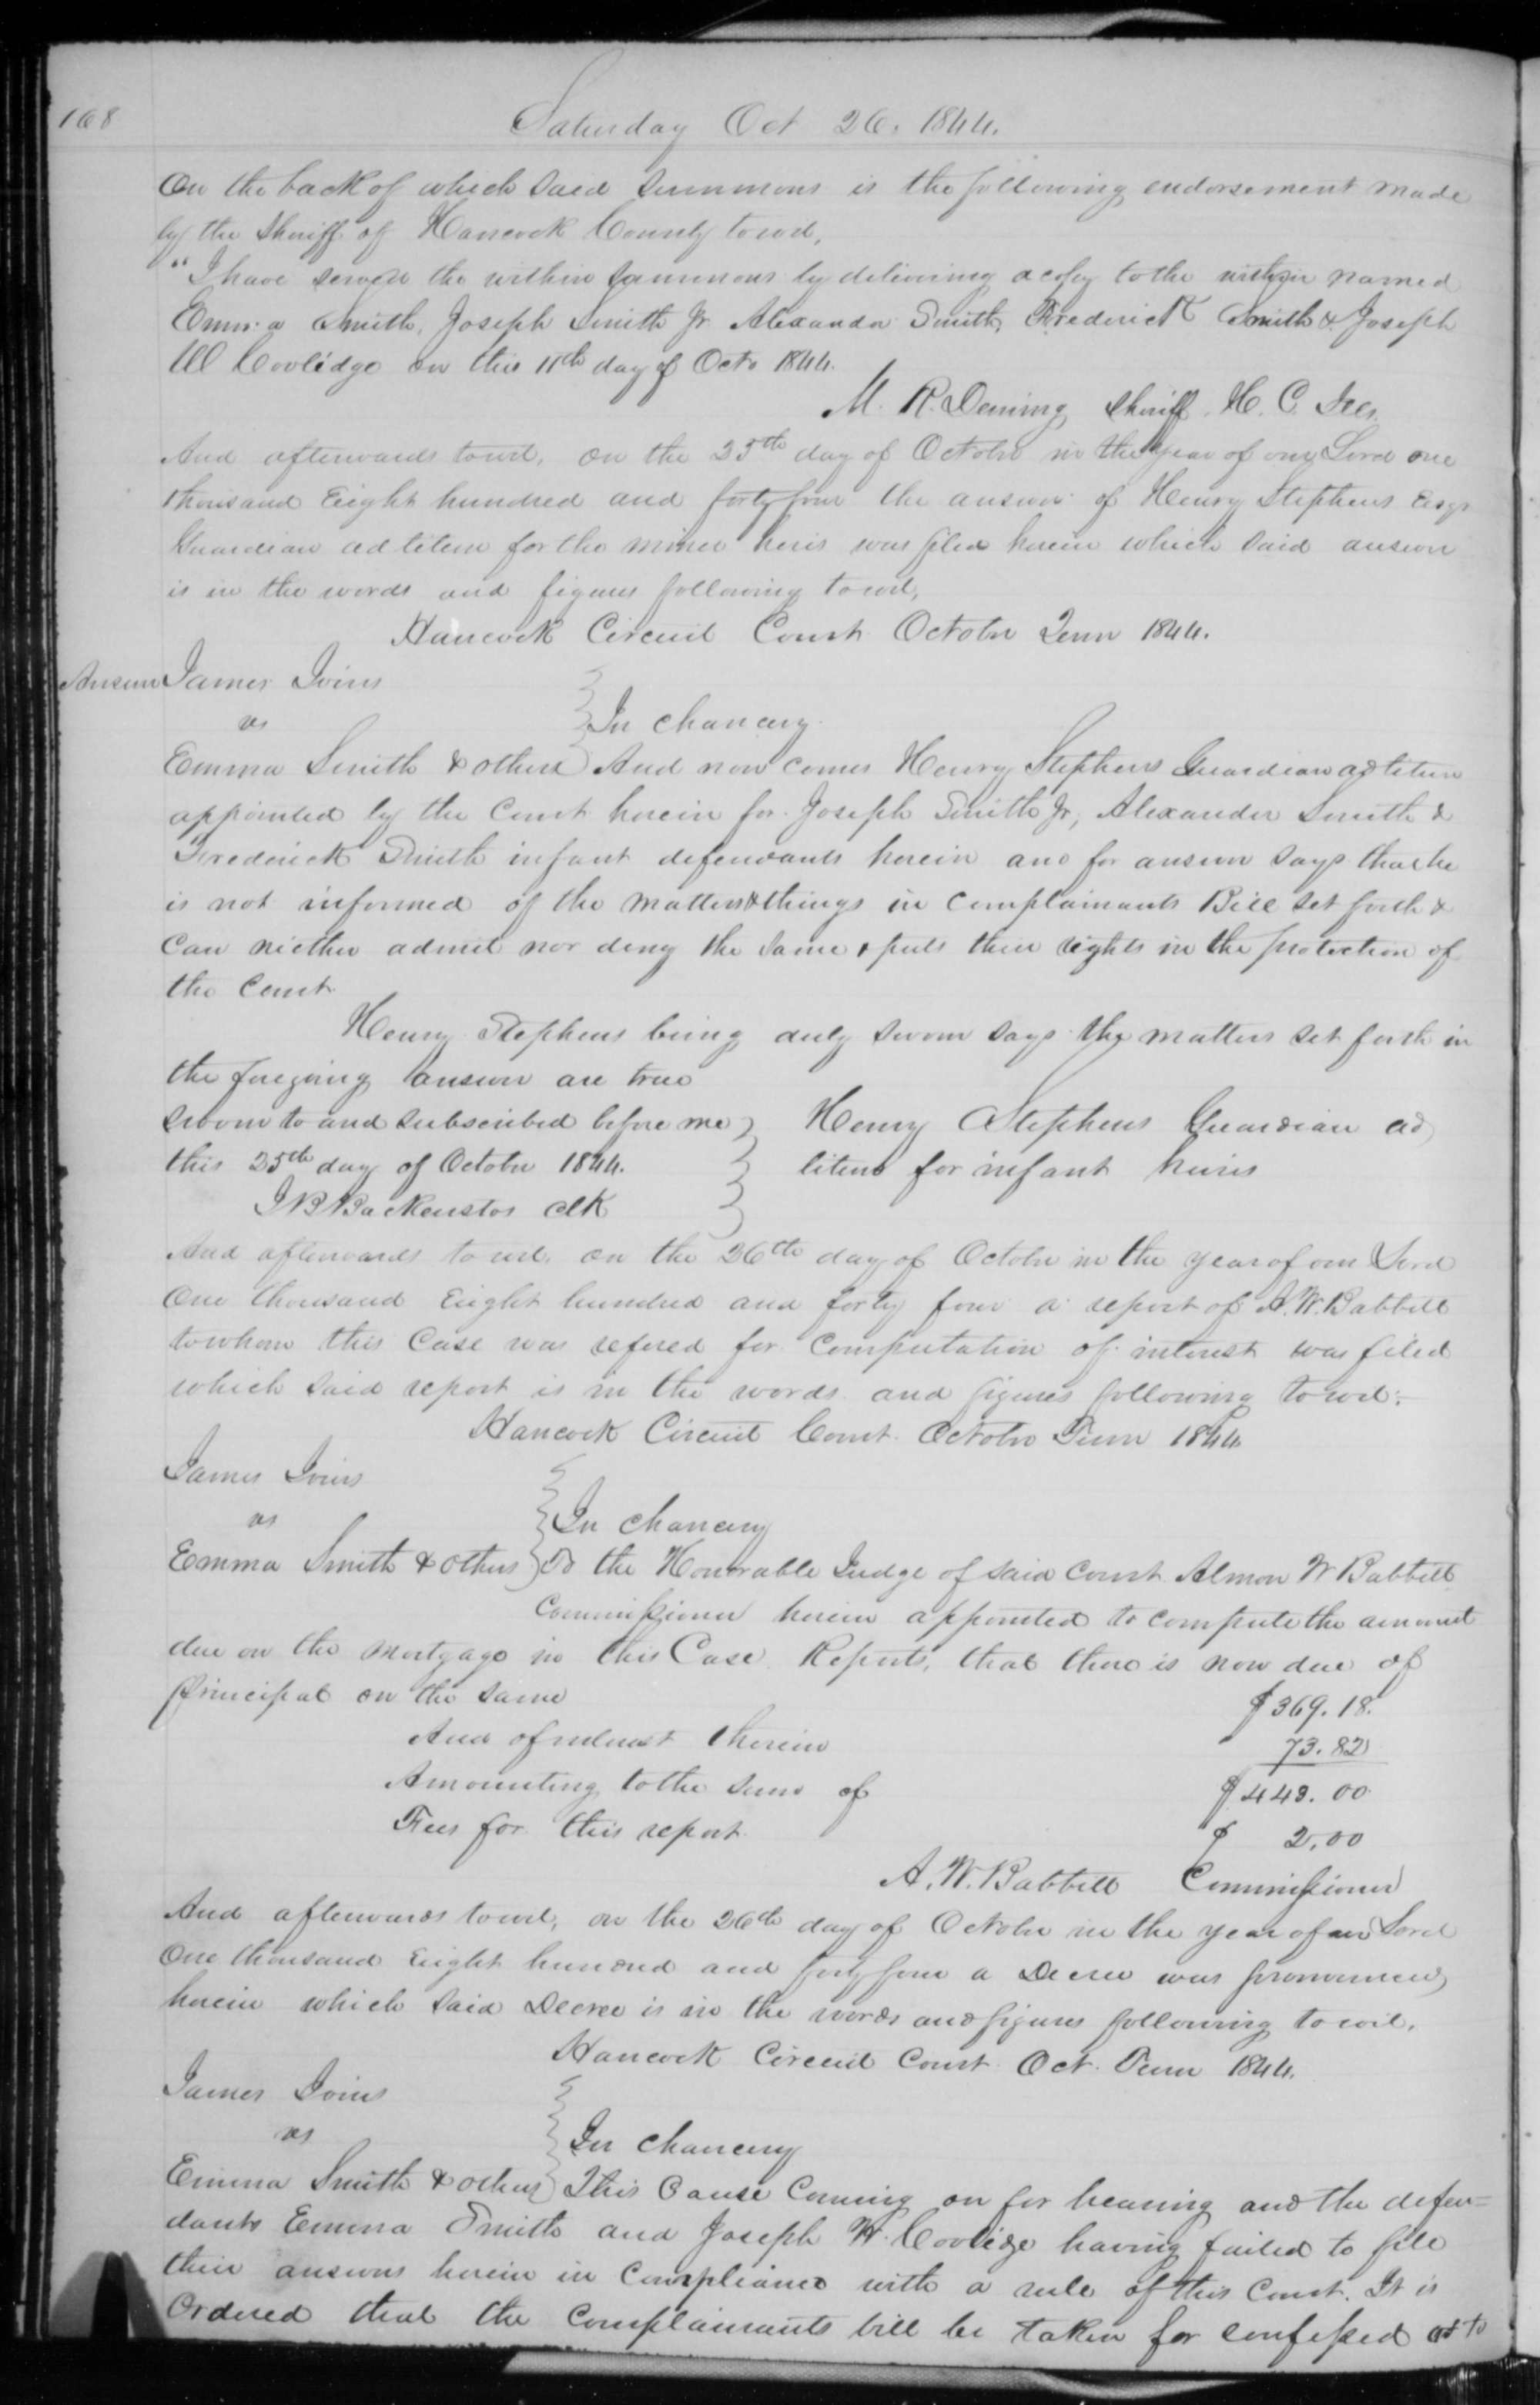 168
Saturday Oct 26. 1844.
On the back of which said summons is the following endorsement made
by the Sheriff of Hancock County towit,
"I have served the within summons by delivering a copy to the within named
Emma Smith, Joseph Smith Jr Alexander Smith, Frederick Smith & Joseph
W Coolidge on this 11th day of Octo 1844.
M. R. Deming Sheriff. H. C. Ills.
And afterwards towit, on the 25th day of October in the year of our Lord one
thousand Eight hundred and forty four the answer of Henry Stephens Esqr
Guardian ad litem for the minor heirs was filed herein which said answer
is in the words and figures following towit,
Hancock Circuit Court October Term 1844.
Answer James Ivins
vs
In chancery
Emma Smith & others And now comes Henry Stephens Guardian ad litem
appointed by the Court herein for Joseph Smith Jr, Alexander Smith &
Frederick Smith infant defendants herein and for answer says that he
is not informed of the matters & things in Complainants Bill set forth &
Can niether admit nor deny the same & puts their rights in the protection of
the Court
Henry Stephens being duly sworn says the matters set forth in
the foregoing answer are true
sworn to and subscribed before me
this 25th day of October 1844.
J B Backenstos clk
Henry Stephens Guardian ad
litem for infant heirs
And afterwards towit, on the 26th day of October in the year of our Lord
One thousand Eight hundred and forty four a report of A. W. Babbitt
to whom this Case was refered for Computation of interest was filed
which said report is in the words and figures following towit:-
Hancock Circuit Court October Term 1844
James Ivins
vs
In chancery
Emma Smith & others To the Honorable Judge of said Court Almon W Babbitt
Commissioner herein appointed to compute the amount
due on the mortgage in this Case Reports, that there is now due of
Principal on the same $369.18.
And of interest therein 73.82
Amounting to the sum of $443.00
Fees for this report $ 2.00
A. W. Babbitt Commissioner
And afterwards towit, on the 26th day of October in the year of our Lord
One thousand Eight hundred and forty four a Decree was pronounced
herein which said Decree is in the words and figures following towit,
Hancock Circuit Court Oct. Term 1844.
James Ivins
vs
In chancery
Emma Smith & others This Cause Coming on for hearing and the defen=
dants Emma Smith and Joseph W. Coolidge having failed to file
their answers herein in Compliance with a rule of this Court. It is
Ordered that the Complainants bill be taken for confessed as to